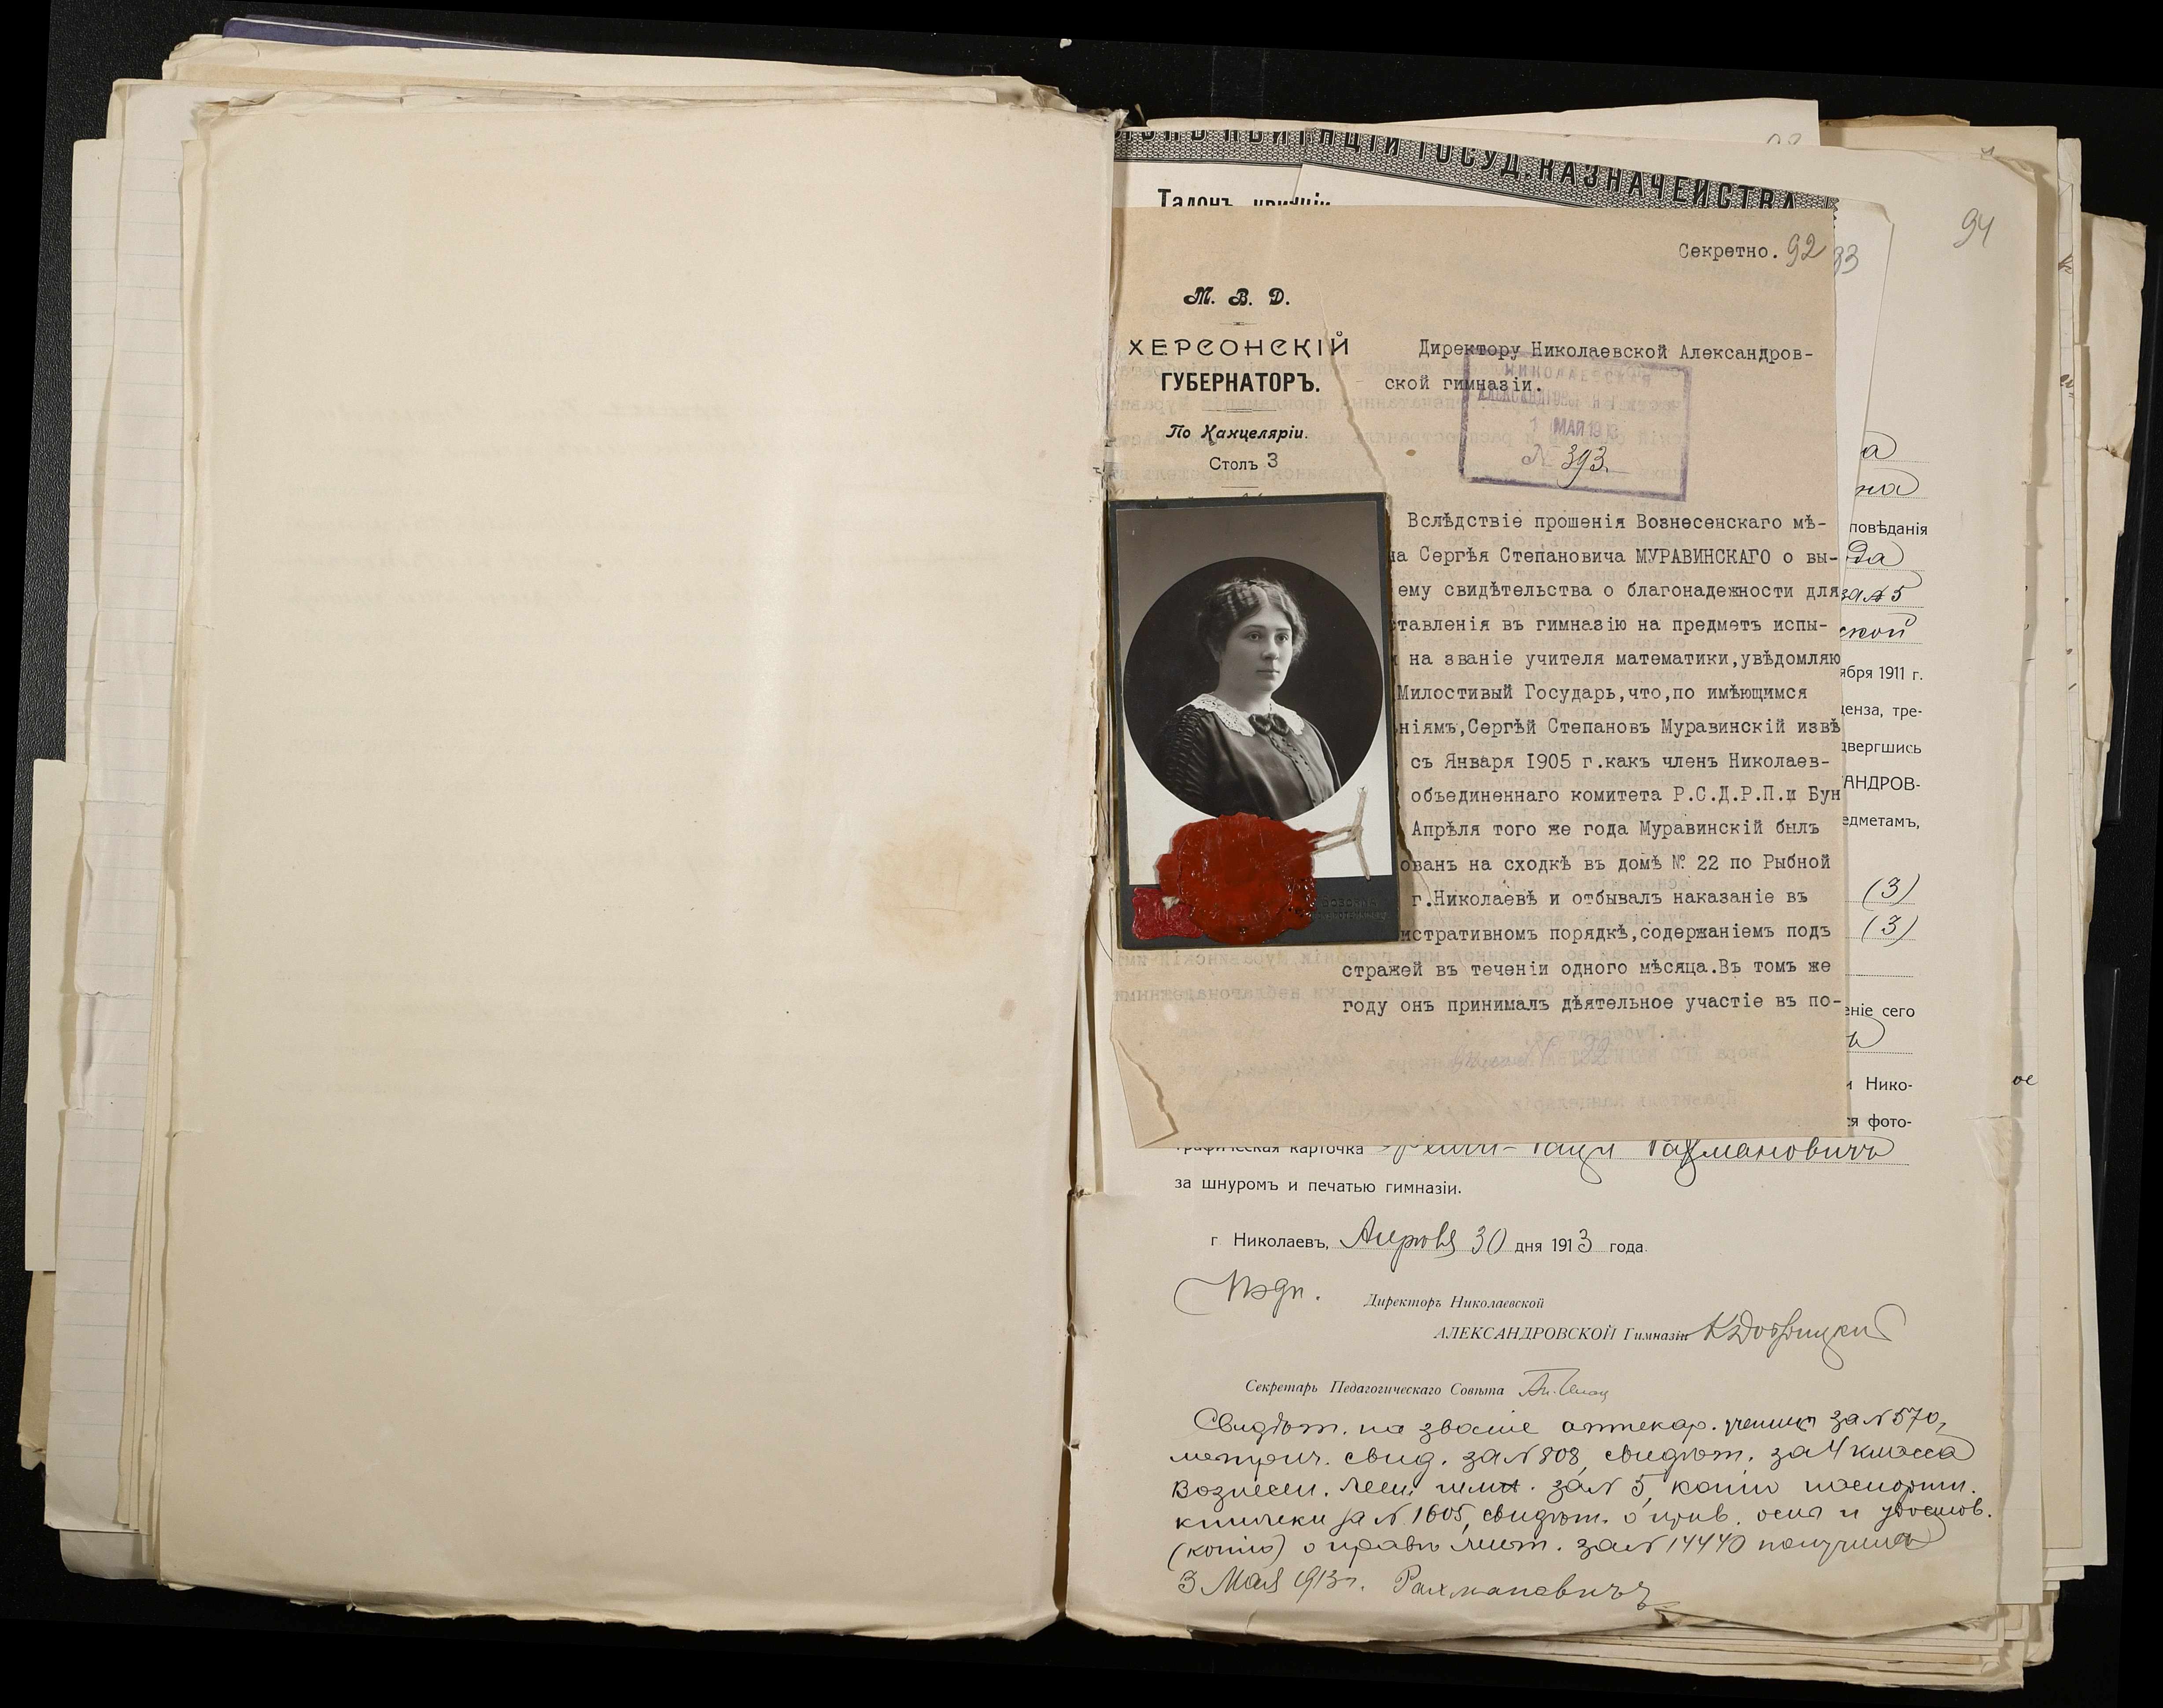 КВИТАНЦІИ ГОСУД. КАЗНАЧЕЙСТВА
Талонъ
Секретно. 92
93
94
М. В. Д.
ХЕРСОНСКІЙ
ГУБЕРНАТОРЪ.
По Канцеляріи.
Столъ 3
Директору Николаевской Александров-
ской гимназіи.
НИКОЛАЕВСКАЯ
1 МАЯ 1913
№ 393.
Вслѣдствіе прошенія Вознесенскаго мѣ-
на Сергѣя Степановича МУРАВИНСКАГО о вы-
ему свидѣтельства о благонадежности для
тавленія въ гимназію на предметъ испы-
на званіе учителя математики,увѣдомляю
Милостивый Государь,что,по имѣющимся
ніямъ,Сергѣй Степановъ Муравинскій извѣ
съ Января 1905 г.какъ членъ Николаев-
объединеннаго комитета Р.С.Д.Р.П.и Бун
Апрѣля того же года Муравинскій былъ
ованъ на сходкѣ въ домѣ № 22 по Рыбной
г.Николаевѣ и отбывалъ наказаніе въ
истративномъ порядкѣ,содержаніемъ подъ
стражей въ теченіи одного мѣсяца.Въ томъ же
году онъ принималъ дѣятельное участіе въ по-
а
на
повѣданія
да
за № 5
ской
ября 1911 г.
ценза, тре-
двергшись
АНДРОВ-
едметамъ,
(3)
(3)
еніе сего
и Нико-
ся фото-
ое
графическая карточка Рахмановичъ
за шнуромъ и печатью гимназіи.
г. Николаевъ, Апрѣля 30 дня 1913 года.
Подп. Директоръ Николаевской
АЛЕКСАНДРОВСКОЙ Гимназіи
Секретарь Педагогическаго Совѣта
Свидѣт. на званіе аптекар. учениц за № 570,
метрич. свид. за № 808, свидѣт. за 4 класса
Вознесен. жен. гимн. за № 5, копію паспортн.
книжки за № 1605, свидѣт. о прив. оспы и удостов.
(копію) о правѣ жит. за № 14440 получила
3 Мая 1913 г. Рахмановичъ